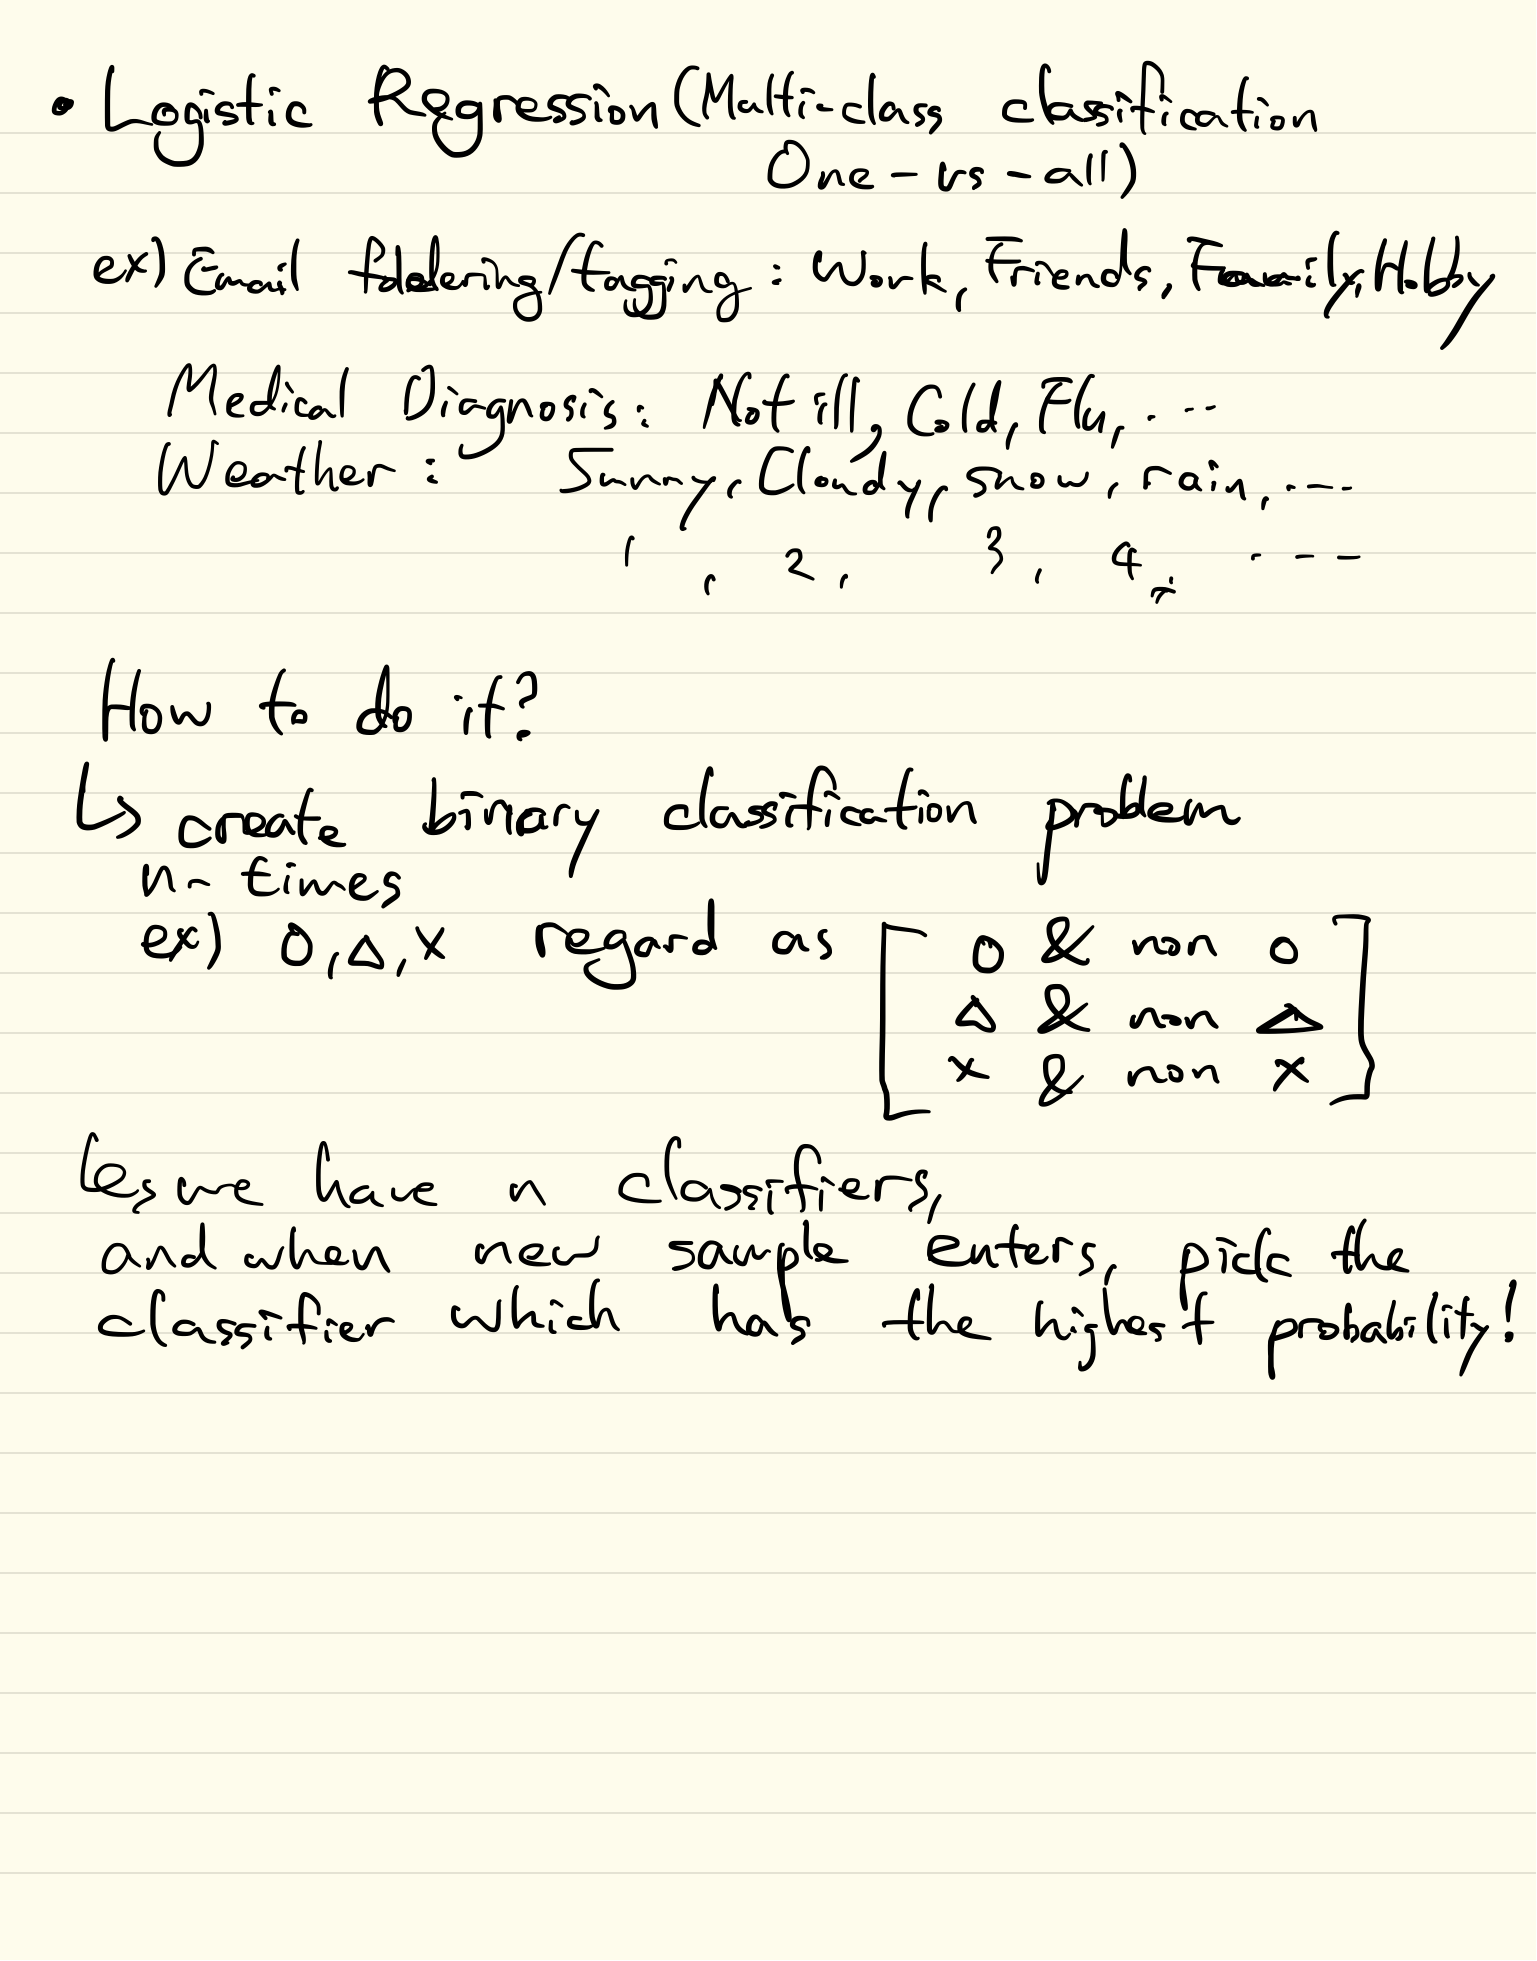 • Logistic Regression (Multi-class classification
One-vs-all)
ex) Email foldering/tagging : Work, Friends, Family, Hobby
Medical Diagnosis: Not ill, Cold, Flu, ...
Weather : Sunny, Cloudy, snow, rain, ...
1, 2, 3, 4, ...
How to do it?
↳ create binary classification problem
n- times
ex) O, △, X regard as [ O & non O
△ & non △
X & non X ]
we have n classifiers,
and when new sample enters, pick the
classifier which has the highest probability!